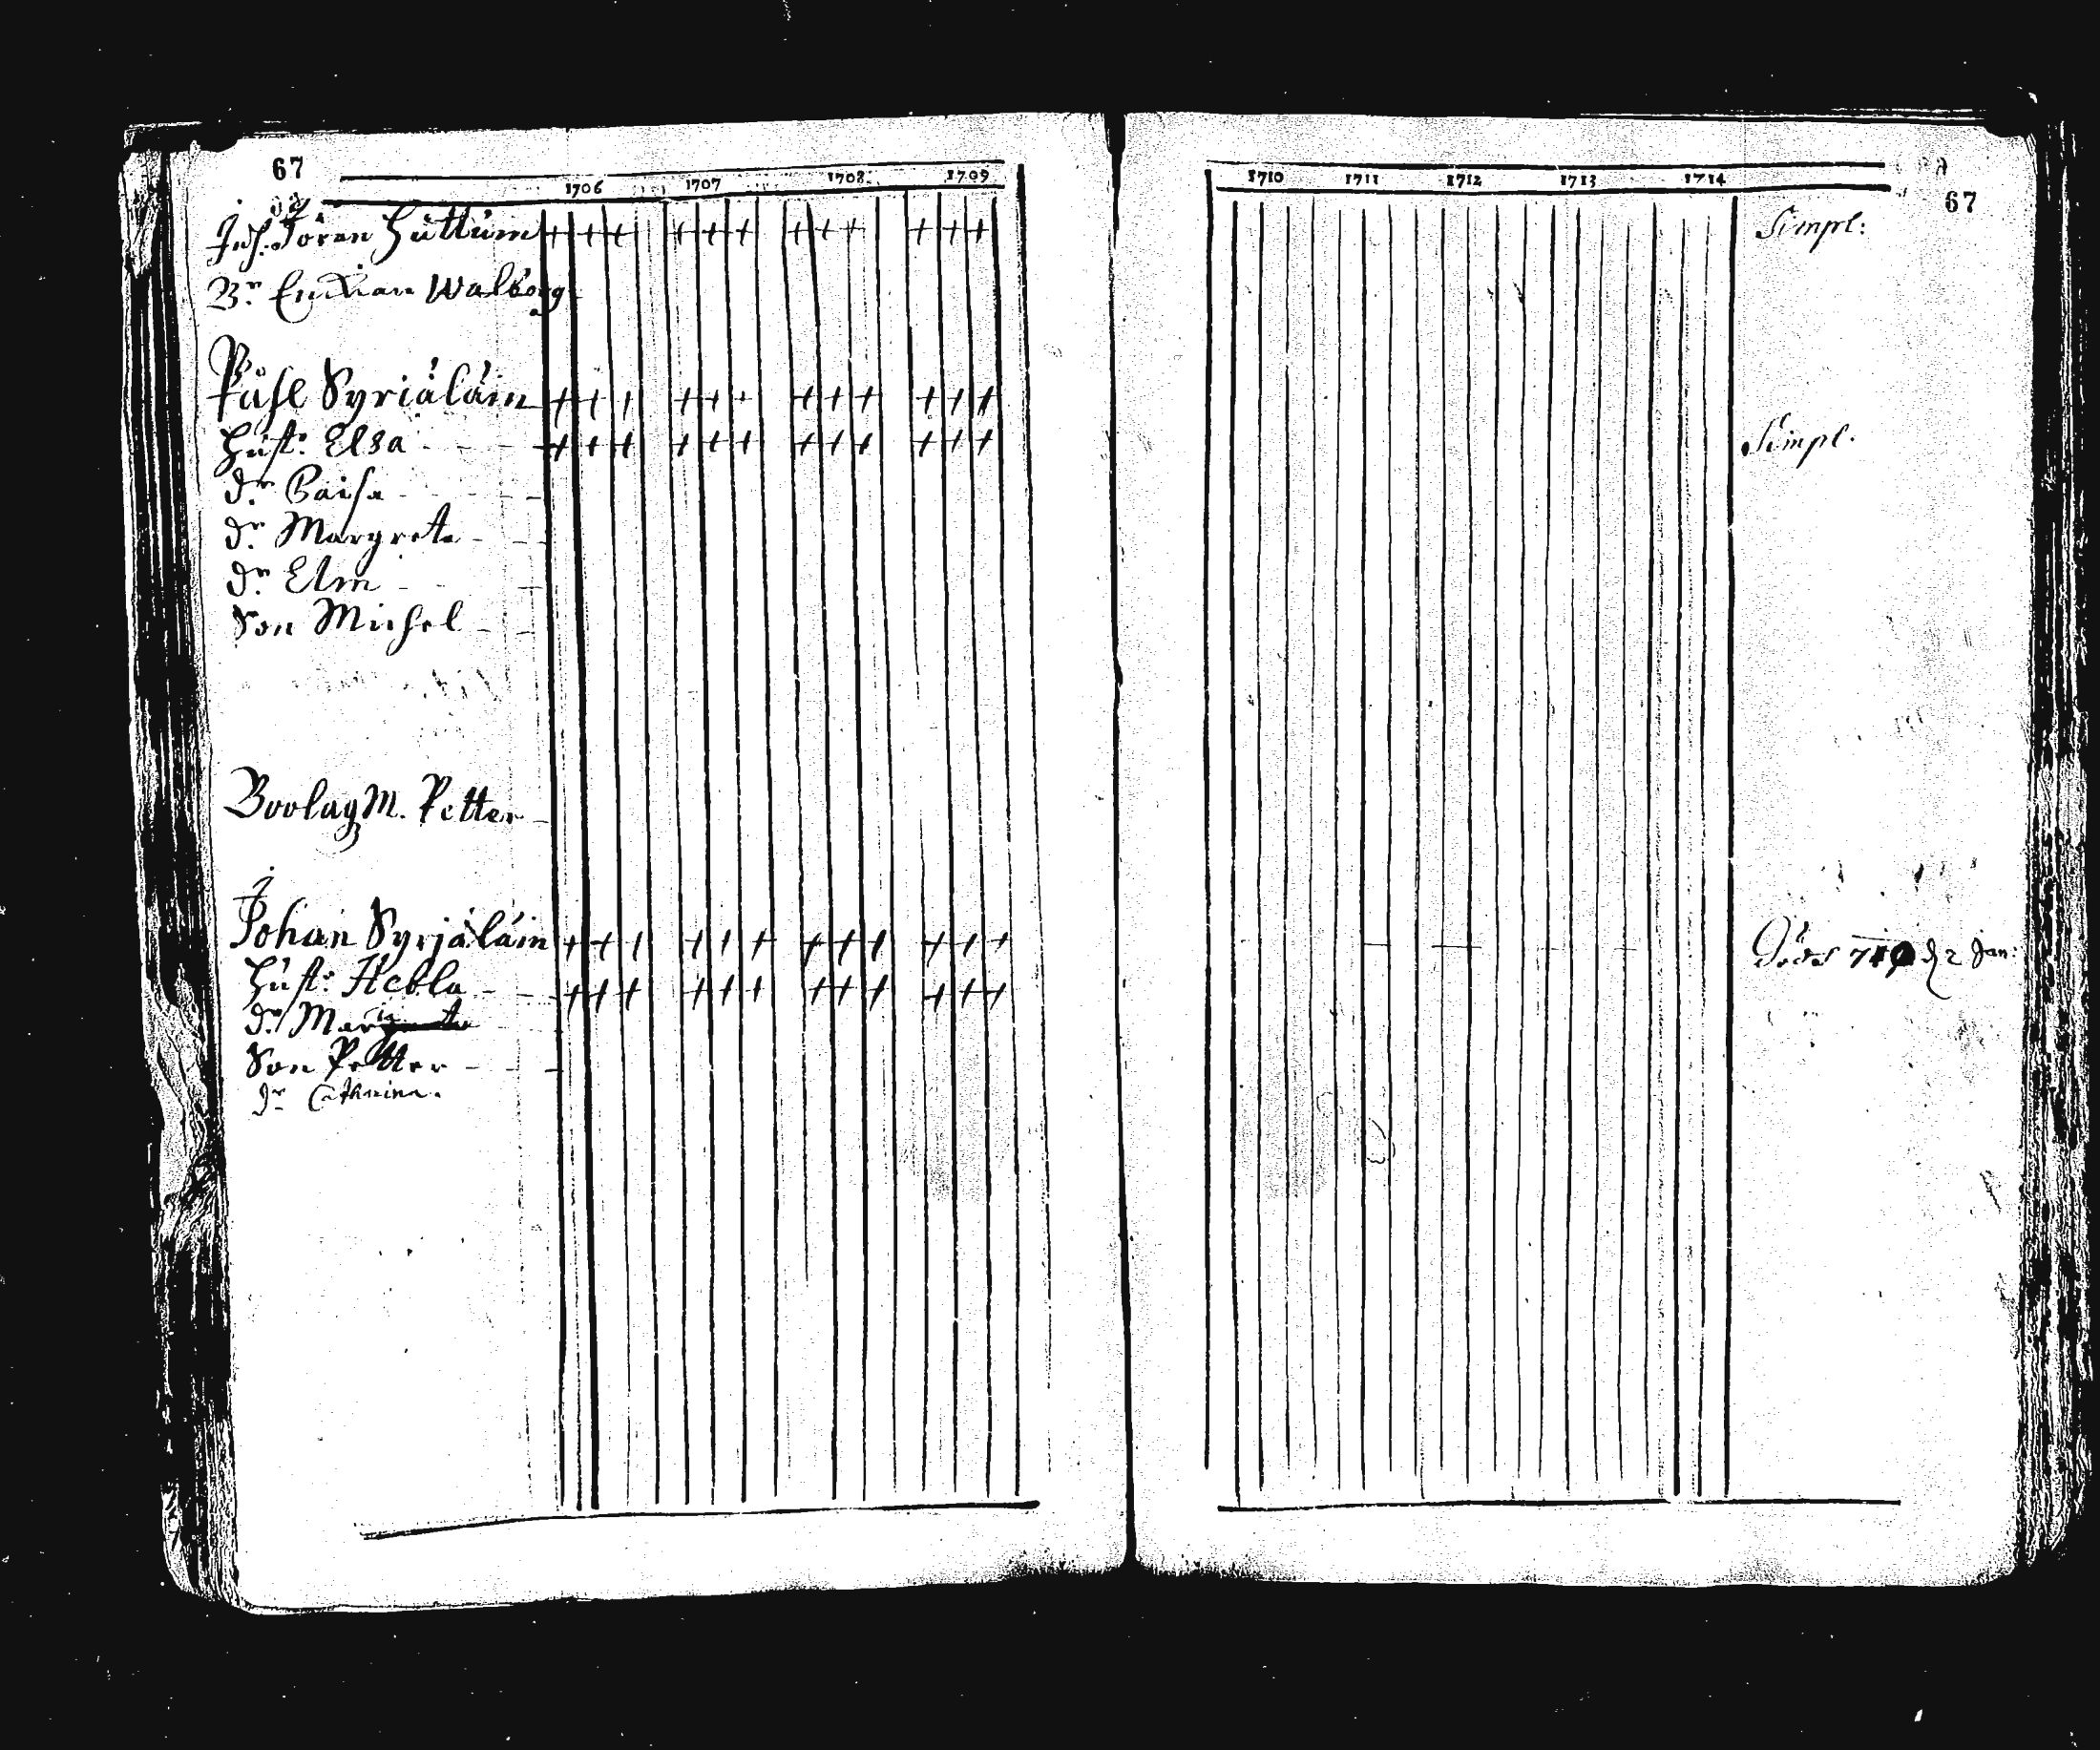 67
1706 1707 1708 1709
Inh. Jören Huttuin
Br. Enckian Walborg
B
Påhl Syriäläin
Hust: Elsa
dr. Caisa
dr. Margreta
dr. Elin
Son Michel
Boolag M. Petter
J
Johan Syrjäläin
Hust: Hebla
dr. Margreta
Son Petter
dr. Catharina.
1710 1711 1712 1713 1714
67
Simpl:
Simpl.
d. 2 Jan: